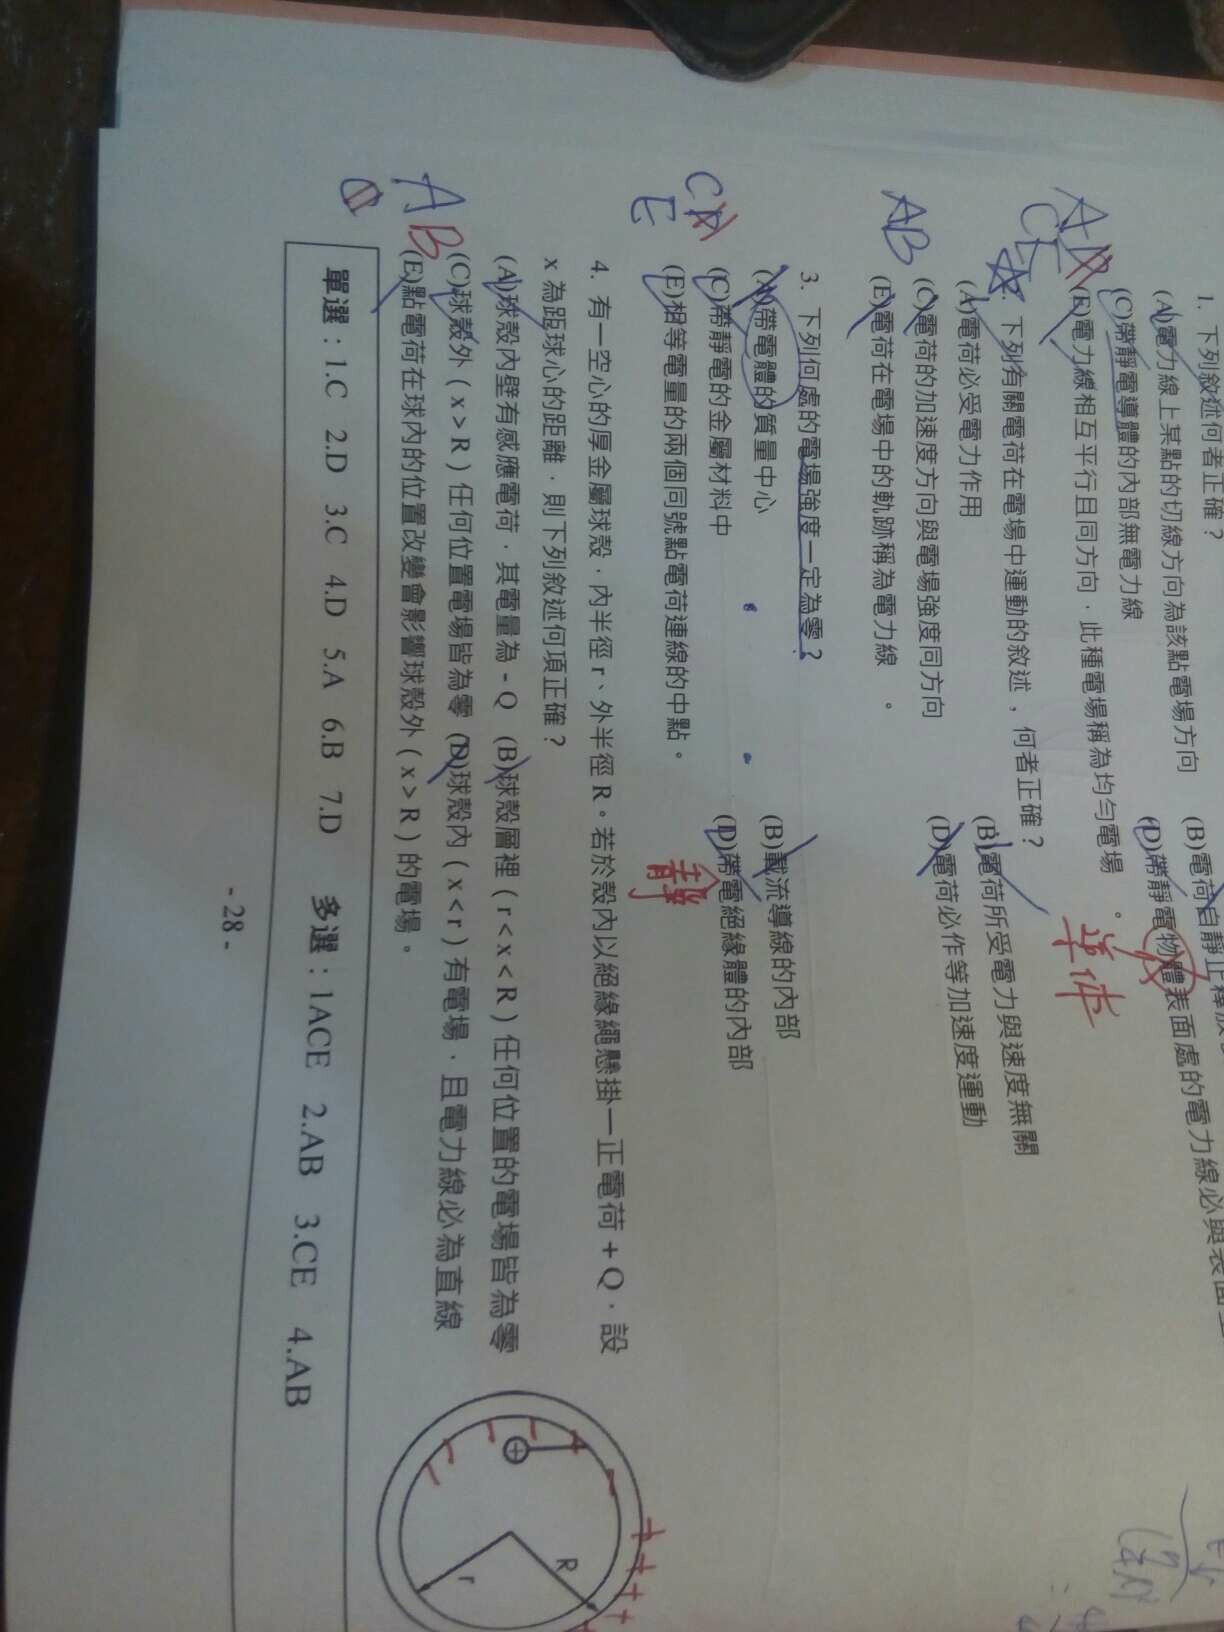 1. 下列敘述何者正確？
(A)電力線上某點的切線方向為該點電場方向 (B)電荷自靜止釋放
(C)帶靜電導體的內部無電力線 (D)帶靜電物體表面處的電力線必與表面
(E)電力線相互平行且同方向，此種電場稱為均勻電場。
導体
ACE
2. 下列有關電荷在電場中運動的敘述，何者正確？
(A)電荷必受電力作用 (B)電荷所受電力與速度無關
(C)電荷的加速度方向與電場強度同方向 (D)電荷必作等加速度運動
(E)電荷在電場中的軌跡稱為電力線。
AB
3. 下列何處的電場強度一定為零？
(A)帶電體的質量中心 (B)載流導線的內部
(C)帶靜電的金屬材料中 (D)帶電絕緣體的內部
靜
(E)相等電量的兩個同號點電荷連線的中點。
C
E
4. 有一空心的厚金屬球殼，內半徑 r、外半徑 R。若於殼內以絕緣繩懸掛一正電荷+Q，設
x 為距球心的距離，則下列敘述何項正確？
(A)球殼內壁有感應電荷，其電量為 - Q (B)球殼層裡（r < x < R）任何位置的電場皆為零
(C)球殼外（x > R）任何位置電場皆為零 (D)球殼內（x < r）有電場，且電力線必為直線
(E)點電荷在球內的位置改變會影響球殼外（x > R）的電場。
AB
R
r
單選：1.C 2.D 3.C 4.D 5.A 6.B 7.D 多選：1ACE 2.AB 3.CE 4.AB
- 28 -